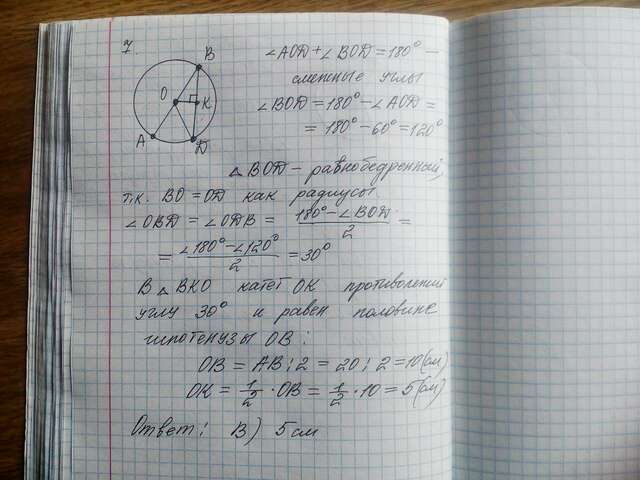 7.
B
O
K
A
D
∠AOD + ∠BOD = 180° –
смежные углы
∠BOD = 180° – ∠AOD =
= 180° – 60° = 120°
△BOD – равнобедренный,
т.к. BO = OD как радиусы
∠OBD = ∠ODB = (180° – ∠BOD)/2 =
= (∠180° – ∠120°)/2 = 30°
В △BKO катет OK противолежит
углу 30° и равен половине
гипотенузы OB:
OB = AB : 2 = 20 : 2 = 10 (см)
OK = 1/2 · OB = 1/2 · 10 = 5 (см)
Ответ: В) 5 см